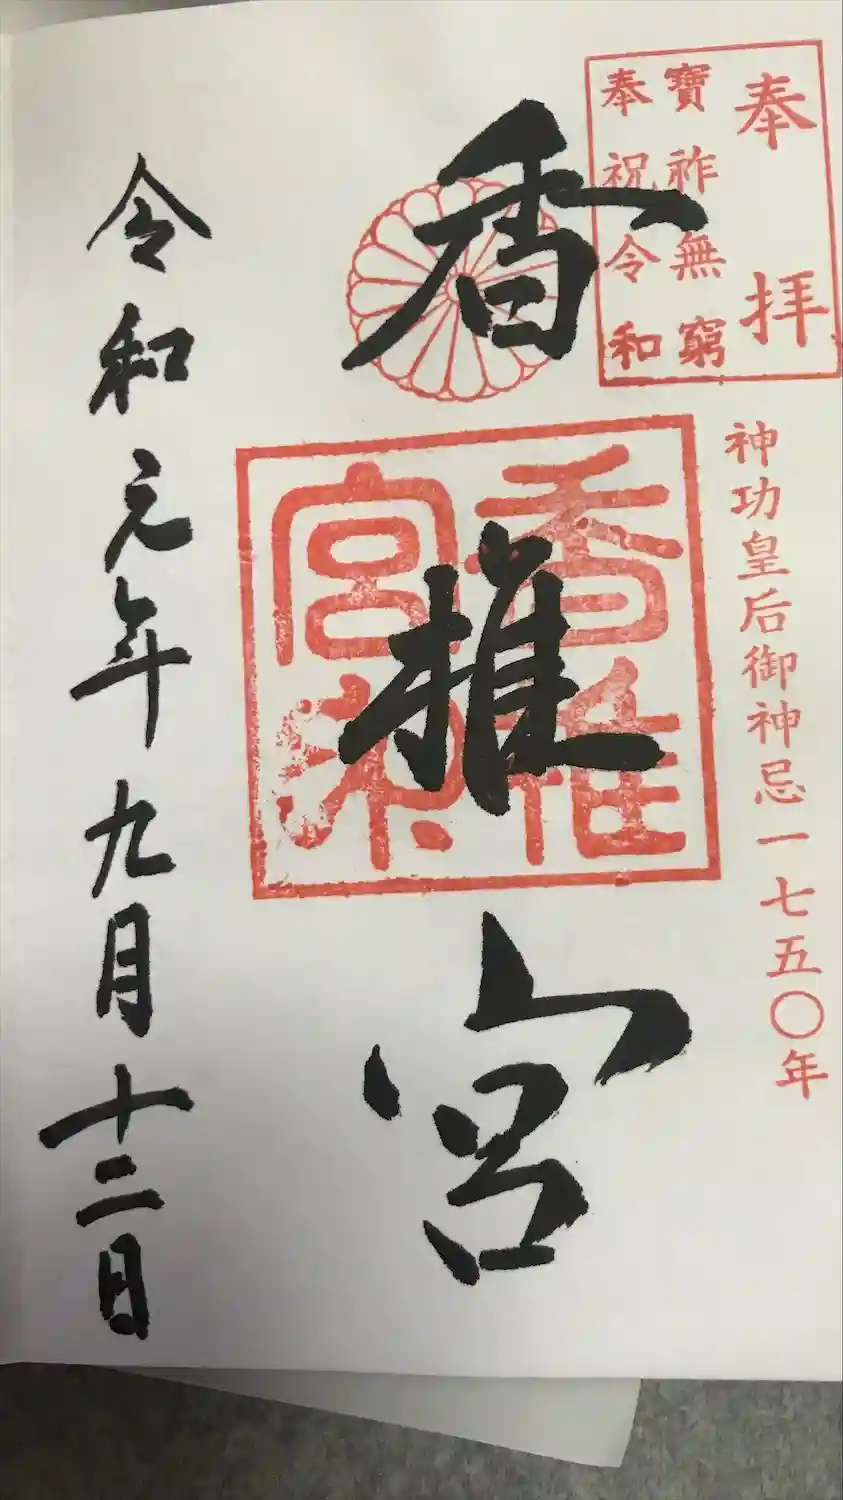 奉拝
寶祚無窮
奉祝令和
神功皇后御神忌一七五〇年
香椎宮
香椎
宮
令和元年九月十二日